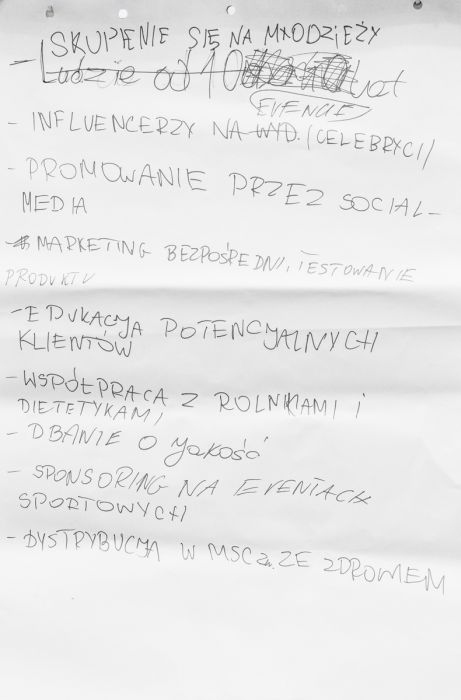 SKUPIENIE SIĘ NA MŁODZIEŻY
- Ludzie od 10 lat
EVENCIE
- INFLUENCERZY NA WYD. (CELEBRYCI)
- PROMOWANIE PRZEZ SOCIAL-
MEDIA
- MARKETING BEZPOŚREDNI, TESTOWANIE
PRODUKTU
- EDUKACJA POTENCJALNYCH
KLIENTÓW
- WSPÓŁPRACA Z ROLNIKAMI i
DIETETYKAMI
- DBANIE O JAKOŚĆ
- SPONSORING NA EVENTACH
SPORTOWYCH
- DYSTRYBUCJA W MSC ZW. ZE ZDROWIEM